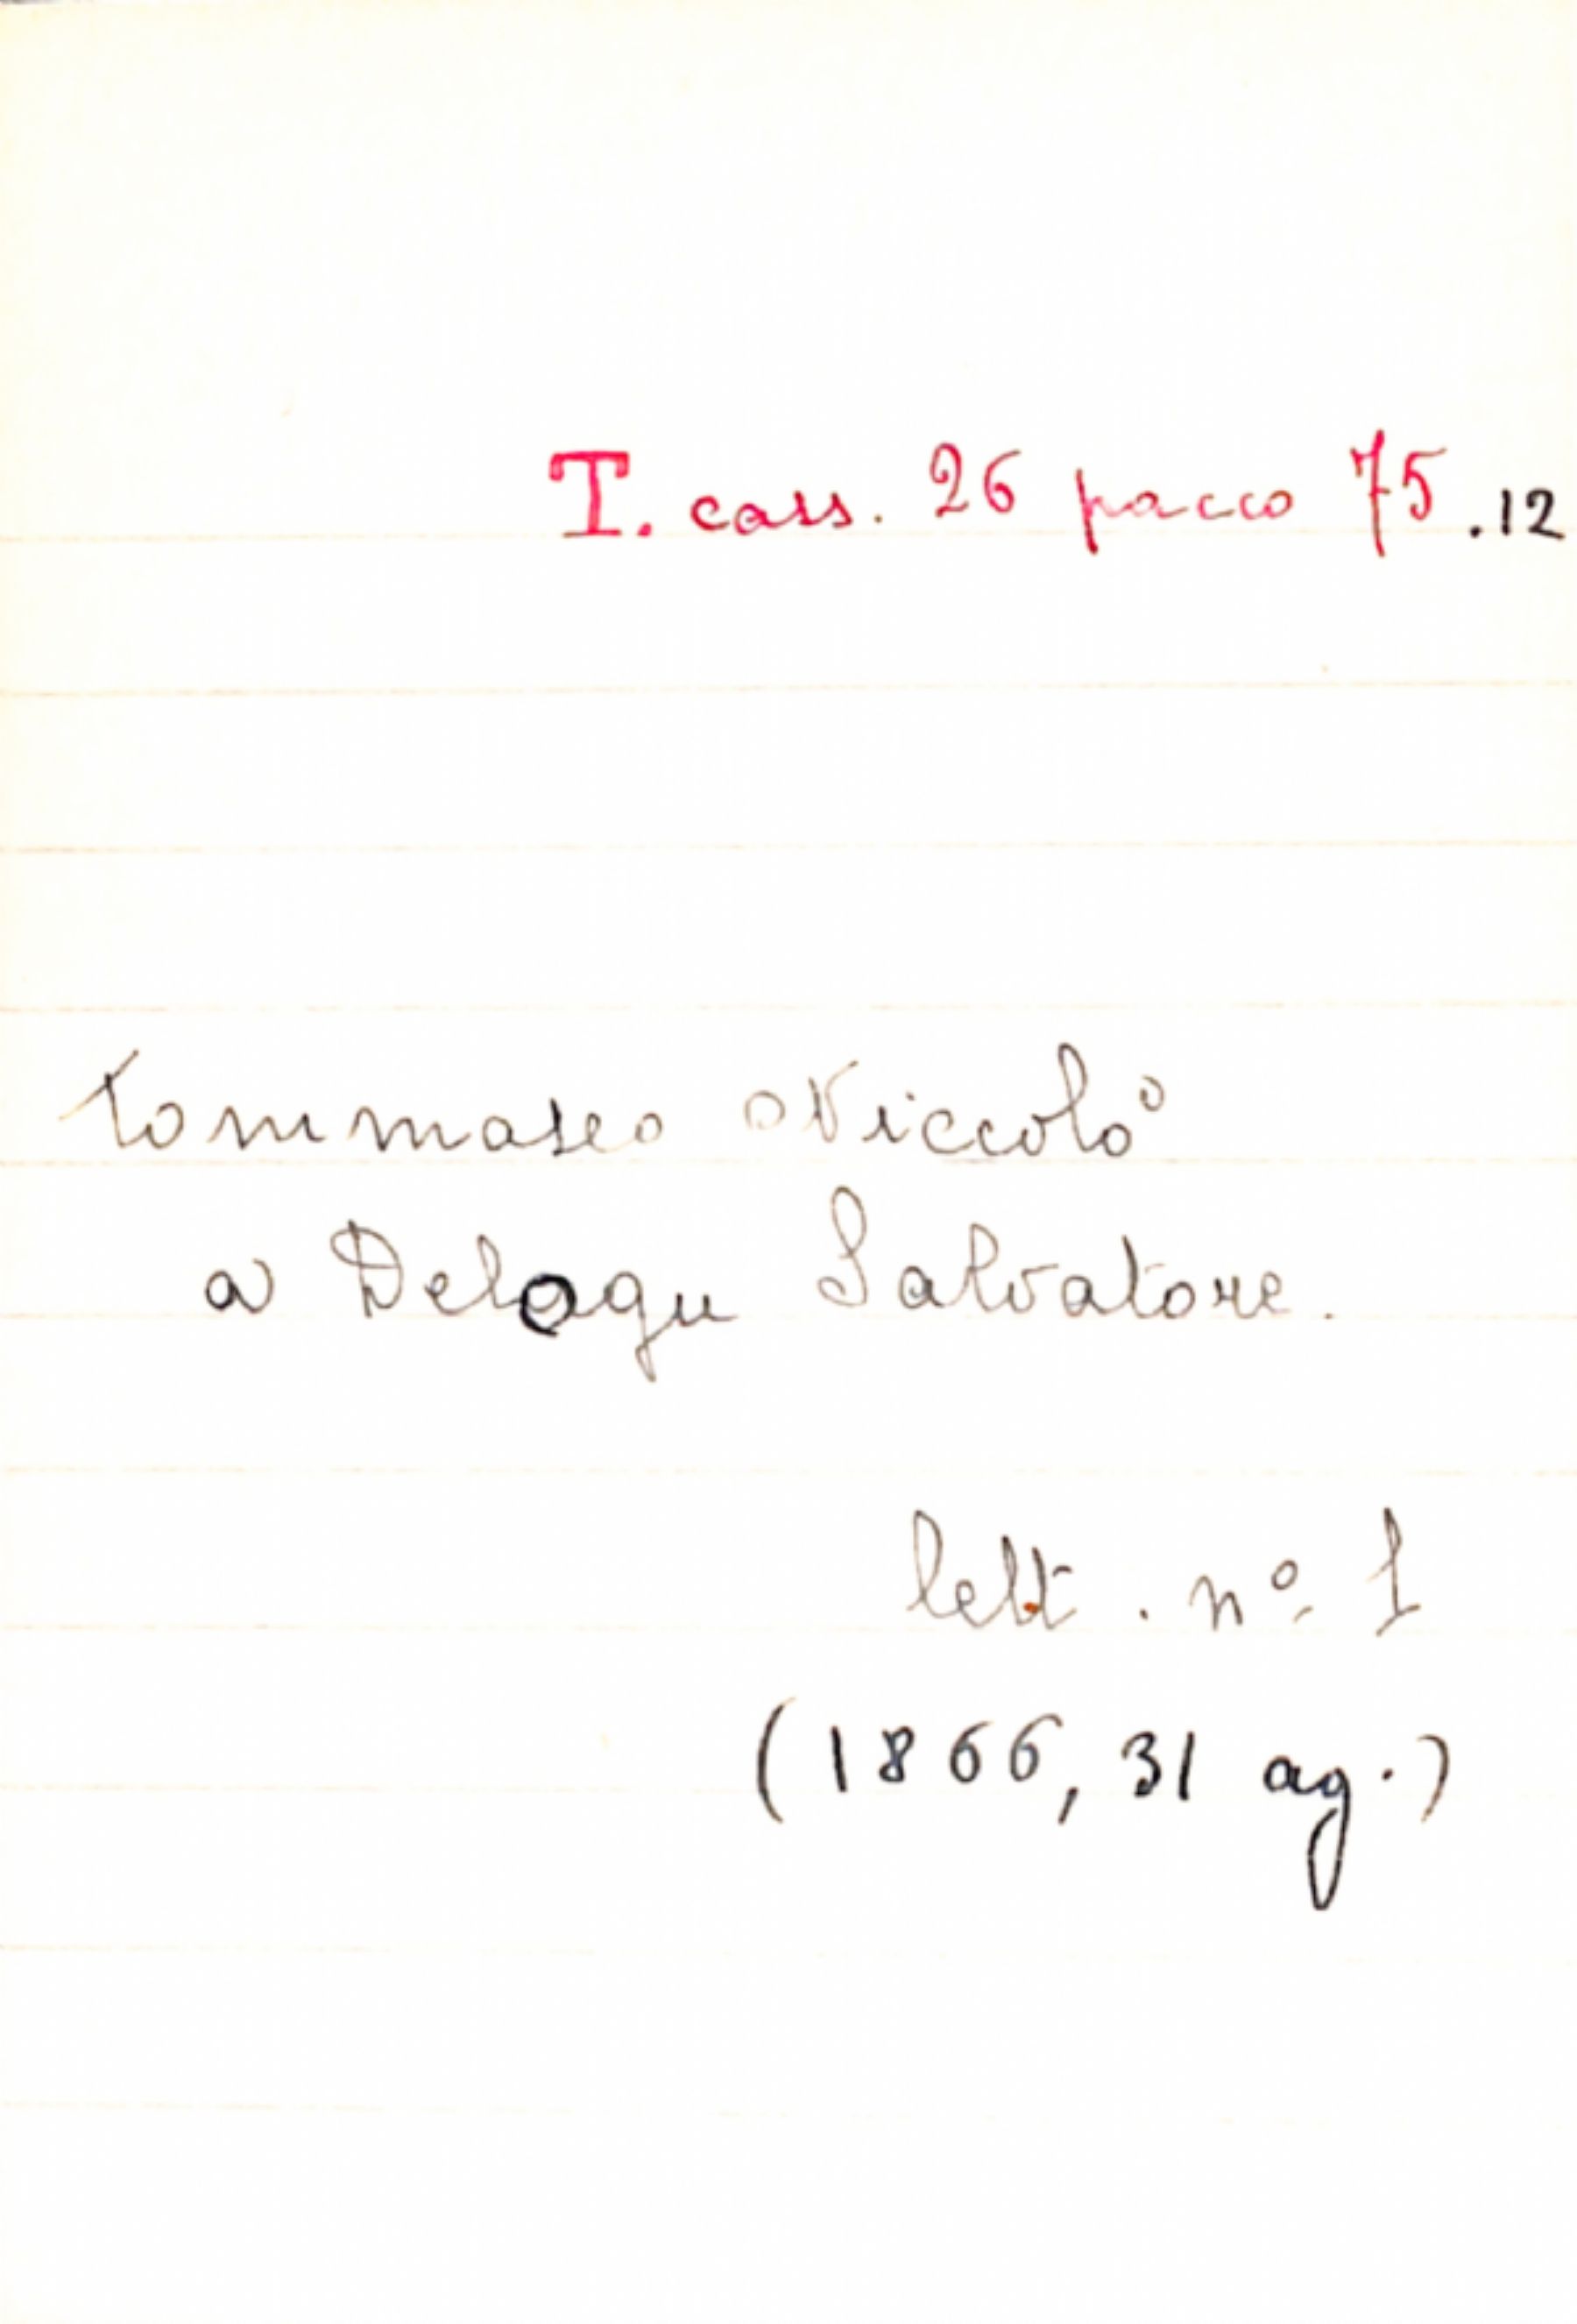 T. cass. 26 pacco 75.12
Tommaseo Niccolò
a Delogu Salvatore.
lett. nº 1
(1866, 31 ag.)